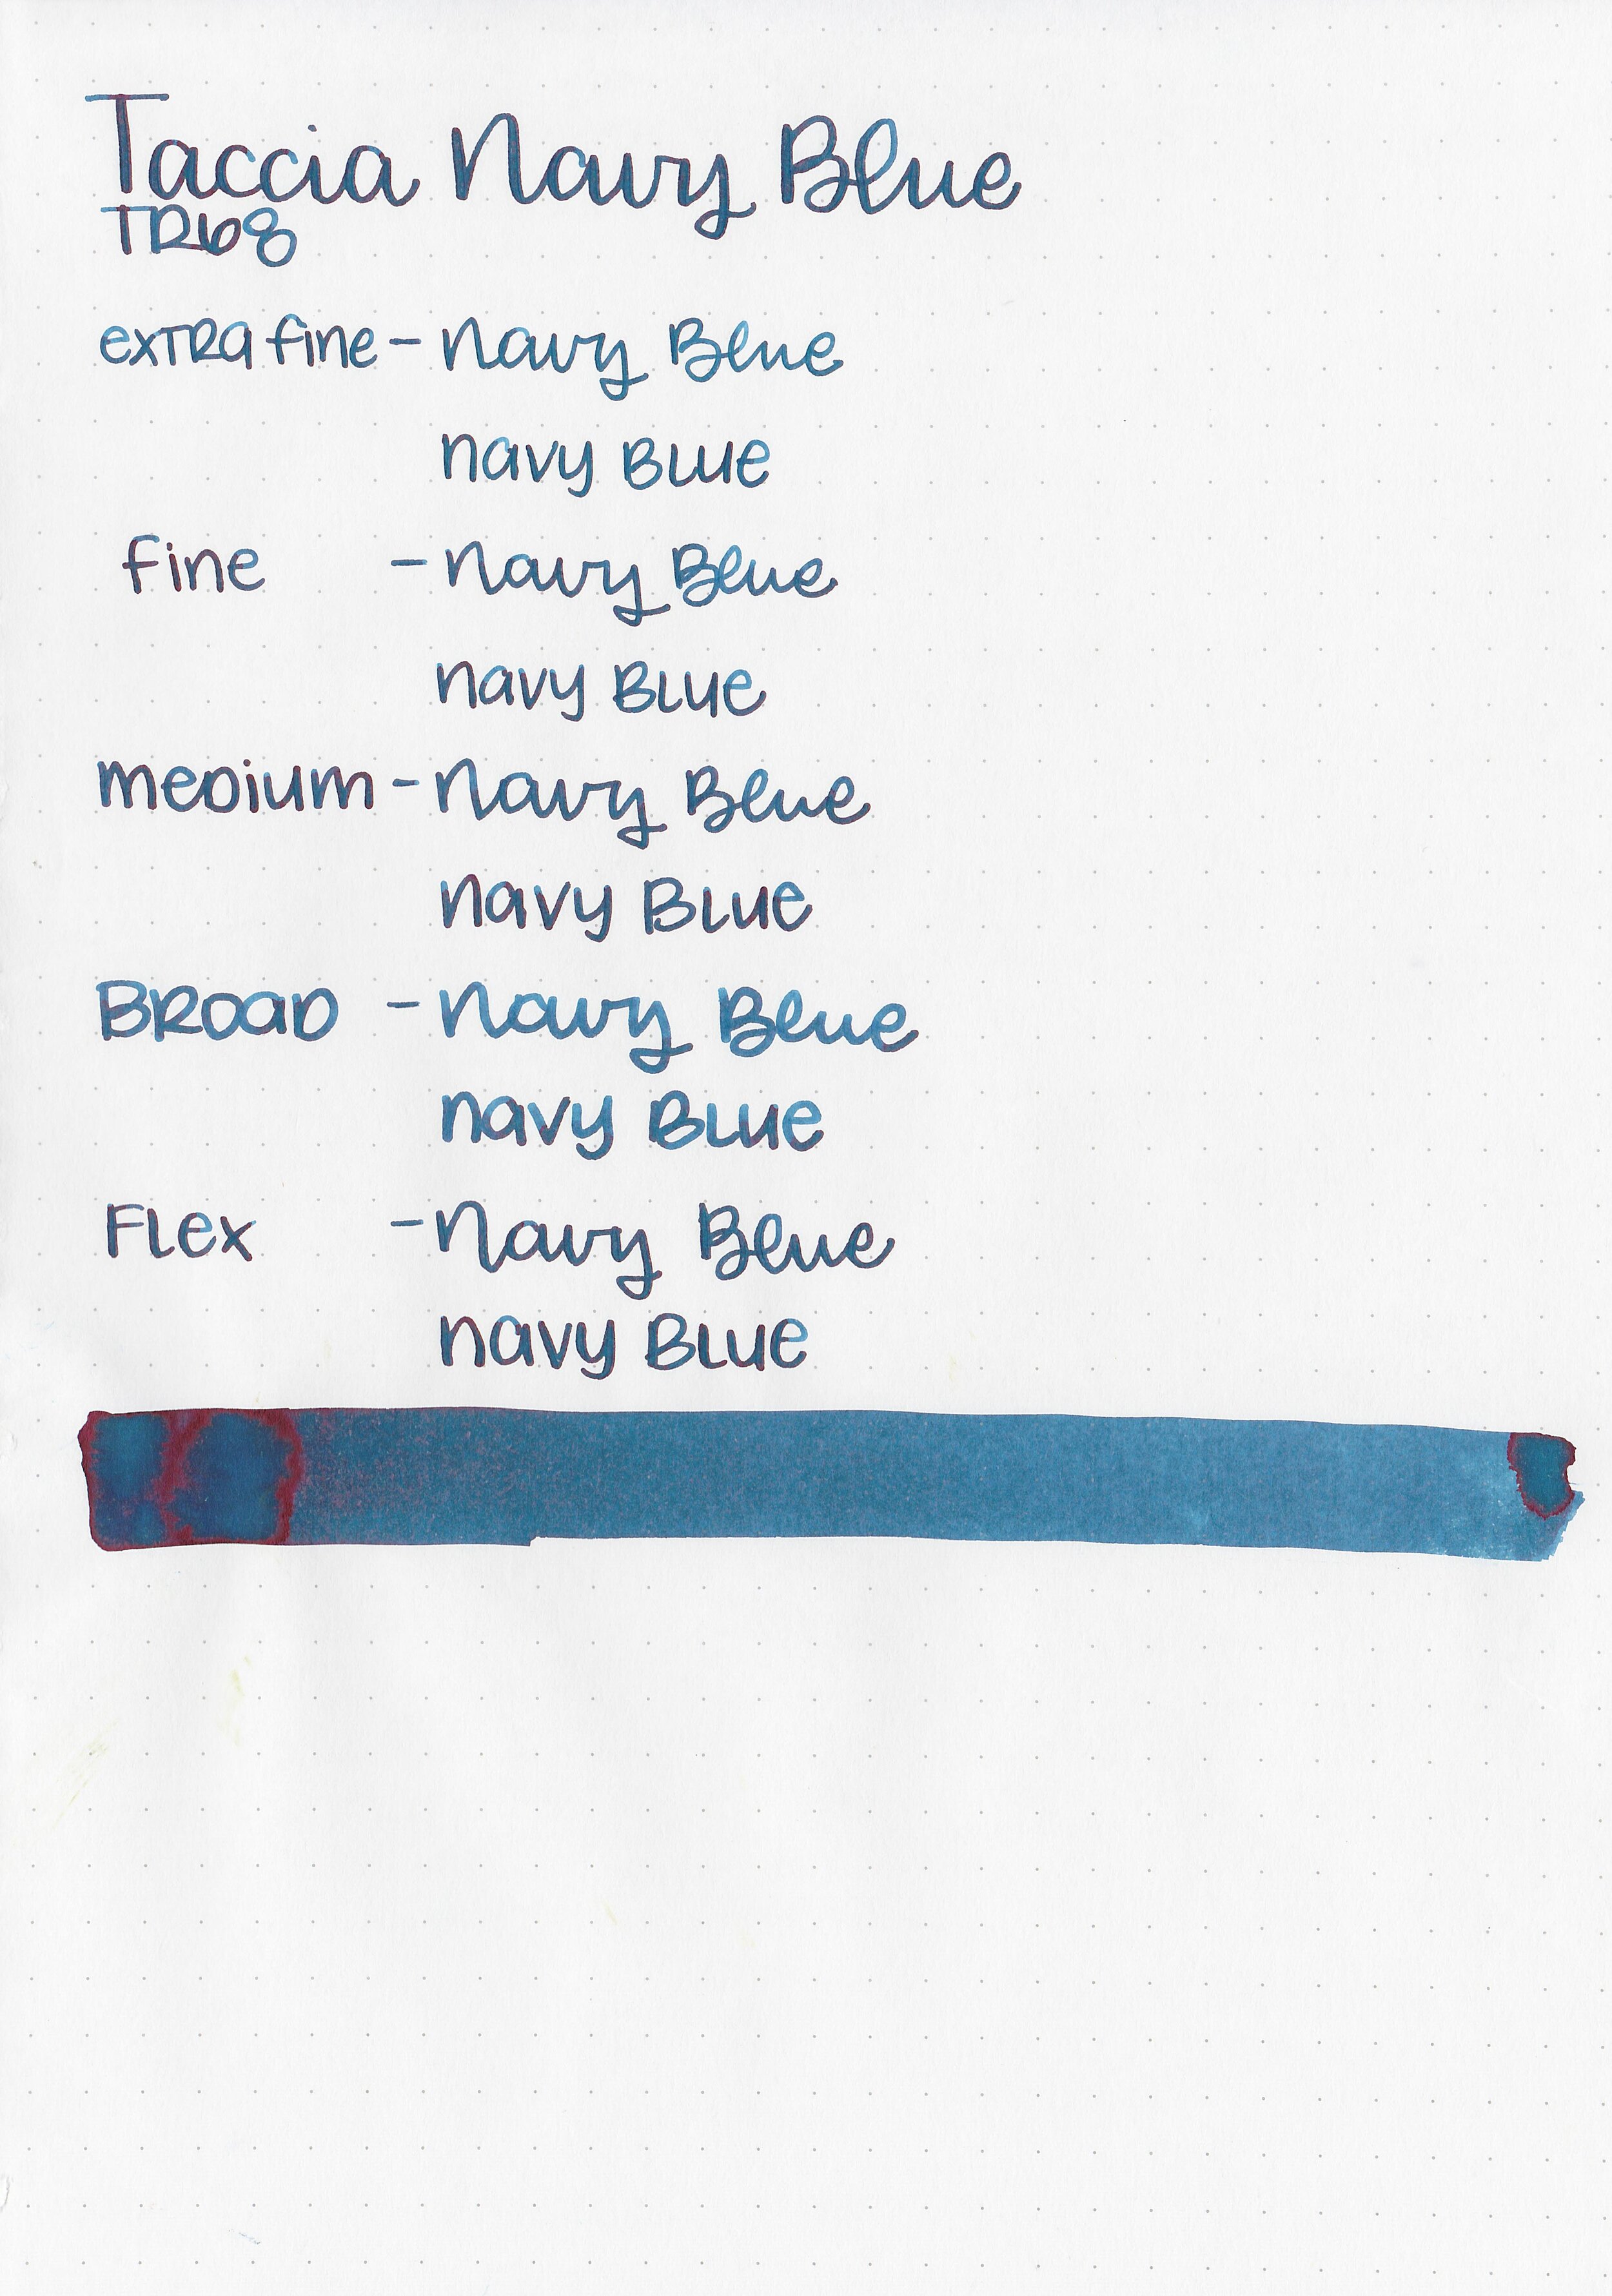 Taccia Navy Blue
TR68
exTRa fine - Navy Blue
navy BLue
fine - Navy Blue
navy BLue
meDium - Navy Blue
navy BLue
BRoaD - Navy Blue
navy BLue
FLex - Navy Blue
navy BLue